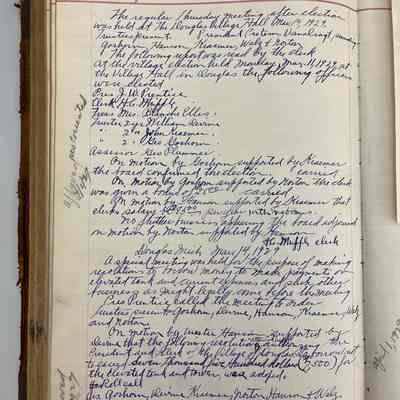 The regular Thursday meeting after election
was held at the Douglas Village Hall Mar 14, 1929
Trustees present President Protem
Goshorn, Hanson, Kreamer, Welz & Norton
The following report was read by the clerk
At the village election held Monday Mar. 11, 1929 at
the Village Hall in Douglas the following officers
were elected
Pres J. W. Prentice
Clerk H. C. Mapple
Treas Mrs. Blanche Ellis
Trustee 2 yr William Devine
" 2 " John Kreamer
" 2 " Geo Goshorn
Assessor Geo Plummer
On motion by Goshorn supported by Kreamer
the board confirmed the election carried
On motion by Goshorn supported by Norton the clerk
was given a bond of carried
On motion by Hanson supported by Kreamer that
clerks salary
No further business appearing the board adjourned
on motion by Norton supported by Hanson
H. C. Mapple clerk
Douglas Mich May 14, 1929
A special meeting was held for the purpose of making
resolutions to borrow money to make payments on
elevated tank and current expenses and such other
business as might legally come before the meeting
Pres Prentice called the meeting to order
Trustees present Goshorn, Devine, Hanson, Kreamer, Welz
and Norton
On motion by trustee Hanson supported by
Devine that the following resolution authorizing the
President and Clerk of the Village of Douglas to borrow
Seven thousand five Hundred dollars (7,500) for
the elevated tank and tower was adopted
Roll call
Goshorn, Devine, Kreamer, Norton Hanson & Welz